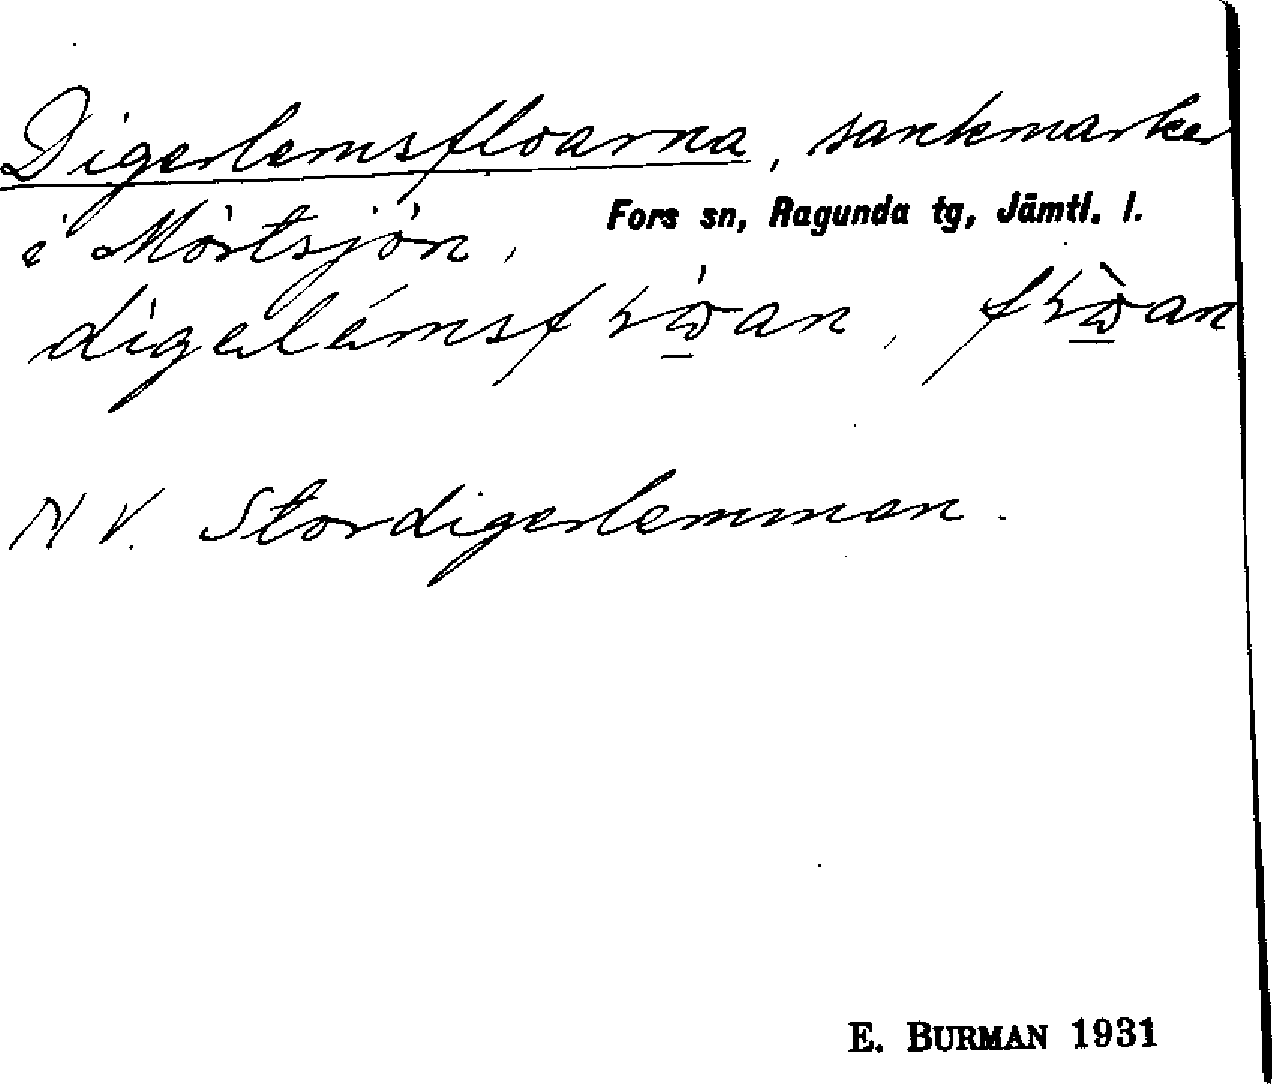 Digerlemsfloarna, sankmarker
i Mörtsjön.
Fors sn, Ragunda tg, Jämtl. l.
N V. Stordigerlemman.
E. BURMAN 1931